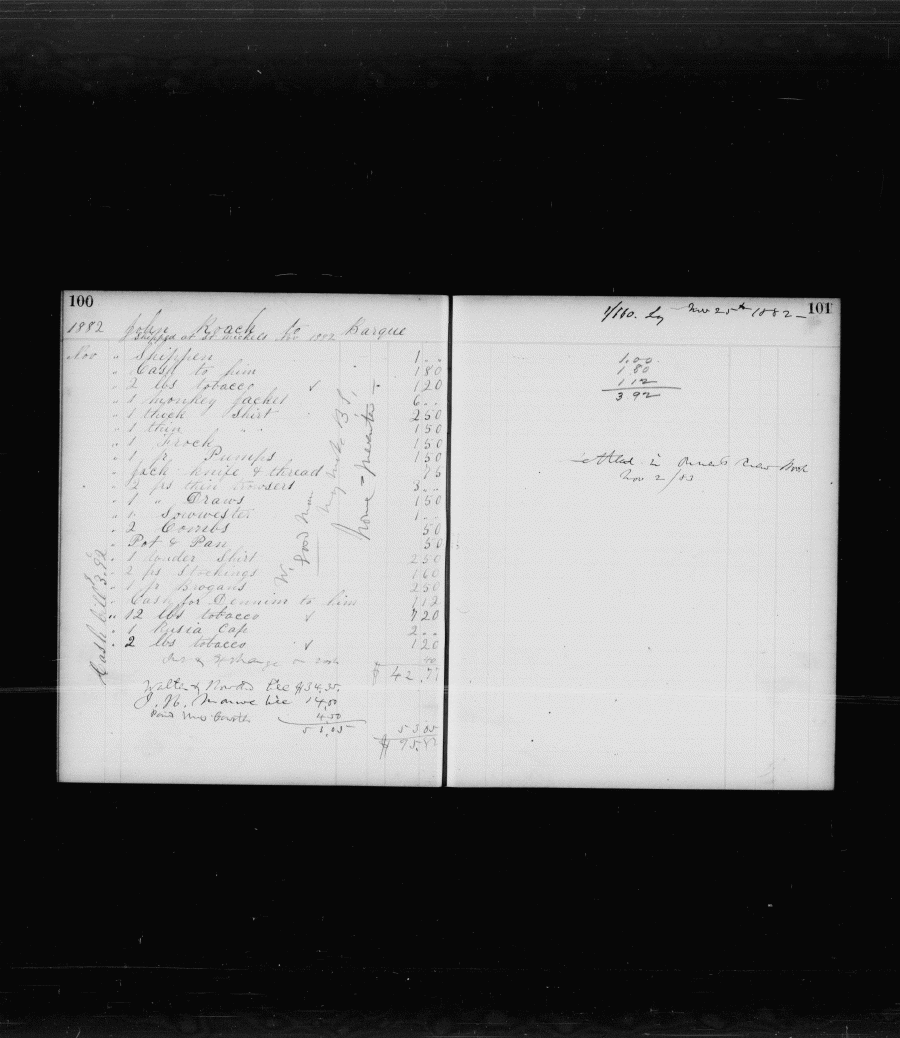 100
1882 John Roach to Barque
Shipped at St Michels Nov 1882
Nov " Shippen 1 . .
" Cash to him 1 80
" 2 lbs tobacco √ 1 20
" 1 monkey jacket 6 . .
" 1 thick Shirt 2 50
" 1 thin " " 1 50
" 1 Frock 1 50
" 1 pr Pumps 1 50
" Jack knife & thread 75
" 2 ps thin trowsers 3 . .
" 1 " Draws 1 50
" 1 Sowwester 1 . .
" 2 Coombs 50
" Pot & Pan 50
" 1 Shirt 2 50
" 2 ps Stockings 1 60
" 1 pr Brogans 2 50
" Cash for Dennim to him 1 12
" 12 lbs tobacco √ 7 20
" 1 Rusia Cap 2 . .
" 2 lbs tobacco √ 1 20
$ 42.77
Cash bill 3.92
W. Good Man
home
Bill $34.55
J. H. 14.00
Paid 4.50
53.05 53.05
$ 95.82
101
1/160. Lay Nov 25th 1882 –
1.00
1 80
1 12
3 92
settled in Owners Crew Book
Nov 2/83